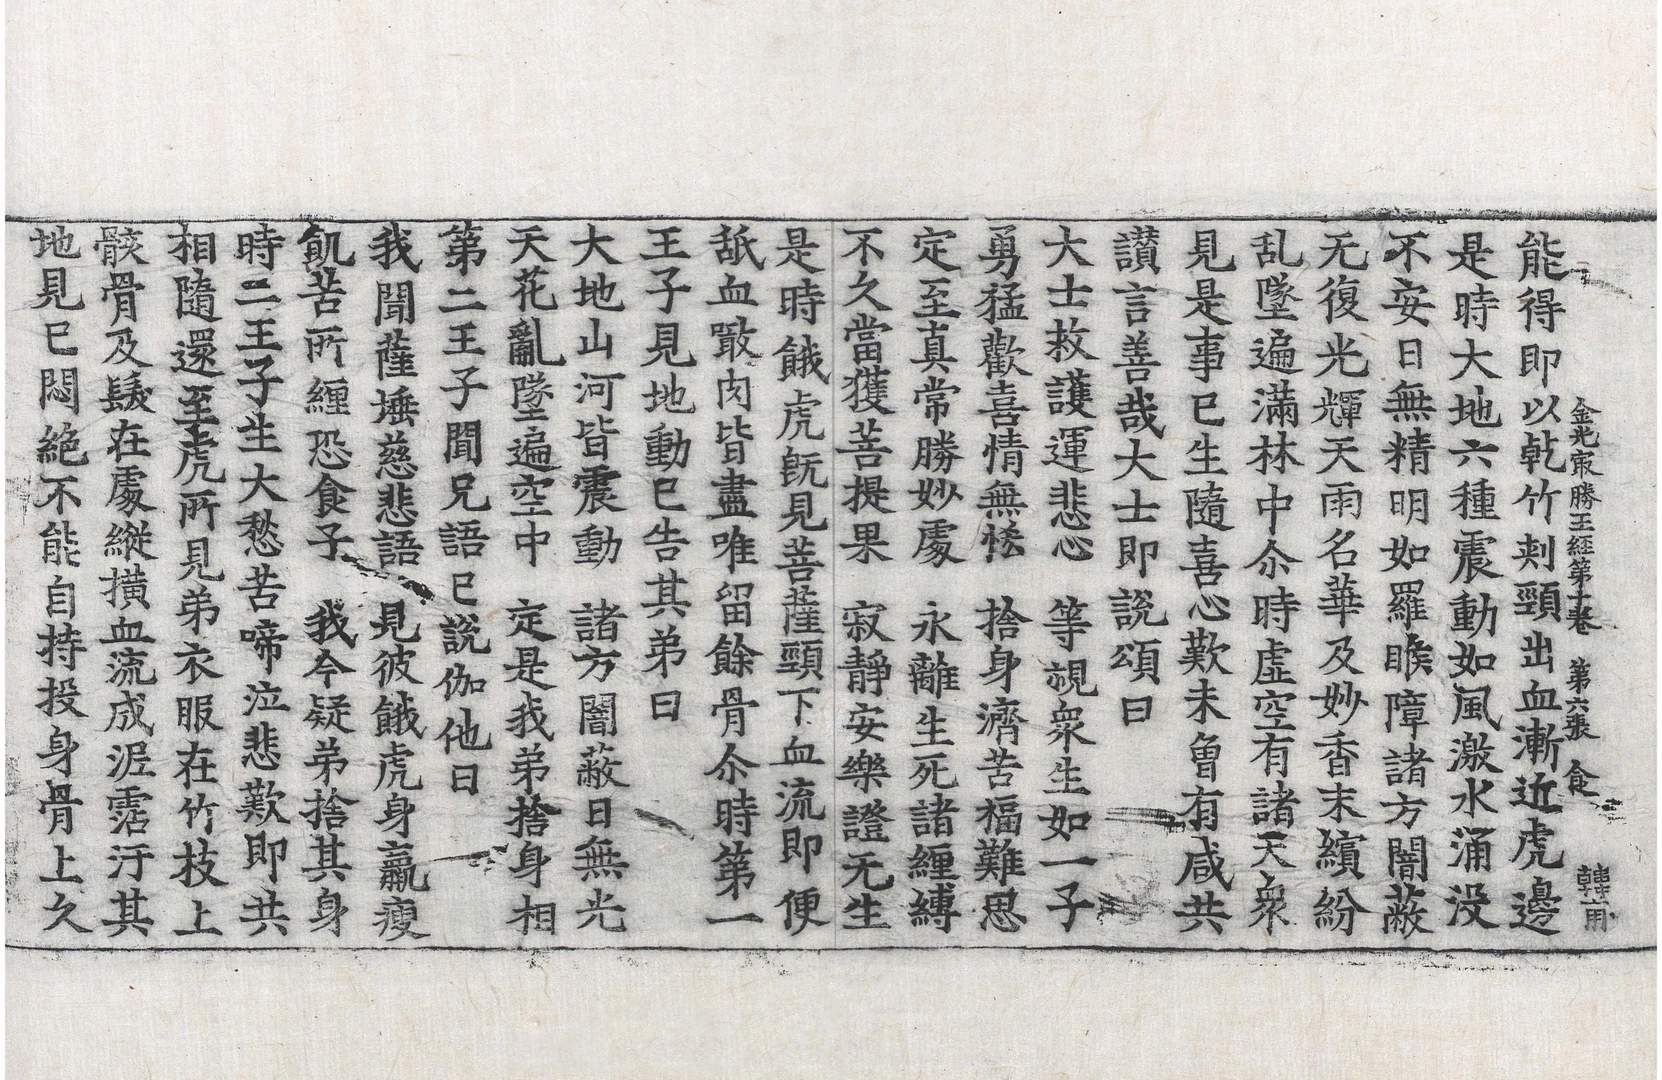 金光㝡勝王経第十卷 第六張 食
韓甫
能得即以乾竹刾頸出血漸近虎邊
是時大地六種震動如風激水涌没
不安日無精明如羅睺障諸方闇蔽
无復光輝天雨名華及妙香末繽紛
乱墜遍滿林中尒時虛空有諸天衆
見是事已生隨喜心歎未曾有咸共
讃言善哉大士即說頌曰
大士救護運悲心 等視衆生如一子
勇猛歡喜情無悋 捨身濟苦福難思
定至真常勝妙處 永離生死諸纒縛
不久當獲菩提果 寂靜安樂證无生
是時餓虎旣見菩薩頸下血流即便
舐血噉肉皆盡唯留餘骨尒時第一
王子見地動已告其弟曰
大地山河皆震動 諸方闇蔽日無光
天花亂墜遍空中 定是我弟捨身相
第二王子聞兄語已說伽他曰
我聞薩埵慈悲語 見彼餓虎身羸瘦
飢苦所纒恐食子 我今疑弟捨其身
時二王子生大愁苦啼泣悲歎即共
相隨還至虎所見弟衣服在竹枝上
骸骨及髮在處縱橫血流成泥霑汙其
地見已悶絕不能自持投身骨上久